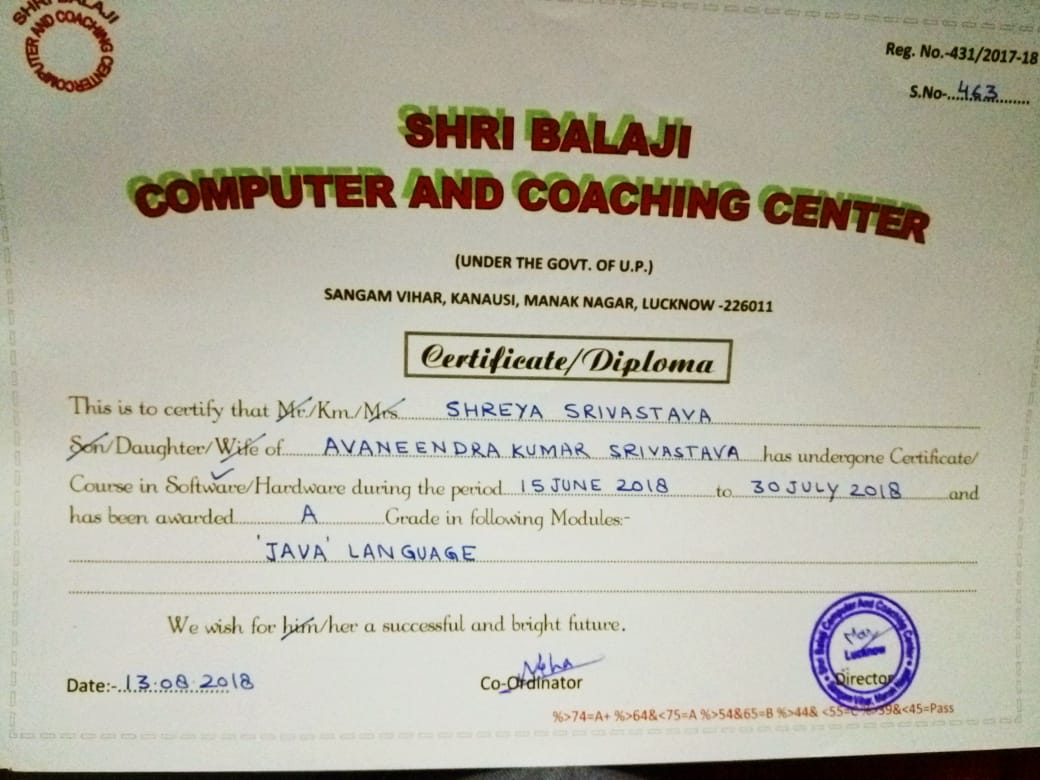 SHRI BALAJI
COMPUTER AND COACHING CENTER
Reg. No.-431/2017-18
S.No-..463
SHRI BALAJI
COMPUTER AND COACHING CENTER
(UNDER THE GOVT. OF U.P.)
SANGAM VIHAR, KANAUSI, MANAK NAGAR, LUCKNOW -226011
Certificate/Diploma
This is to certify that Mr./Km./Mrs. SHREYA SRIVASTAVA
Son/Daughter/Wife of AVANEENDRA KUMAR SRIVASTAVA has undergone Certificate/
Course in Software/Hardware during the period 15 JUNE 2018 to 30 JULY 2018 and
has been awarded A Grade in following Modules:-
'JAVA' LANGUAGE
We wish for him/her a successful and bright future.
Date:-13.08.2018
Neha
Co-Ordinator
Shri Balaji Computer And Coaching Center
Lucknow
Sangam Vihar, Manak Nagar
Director
%>74=A+ %>64&<75=A %>54&65=B %>44& <55=C %>39&<45=Pass